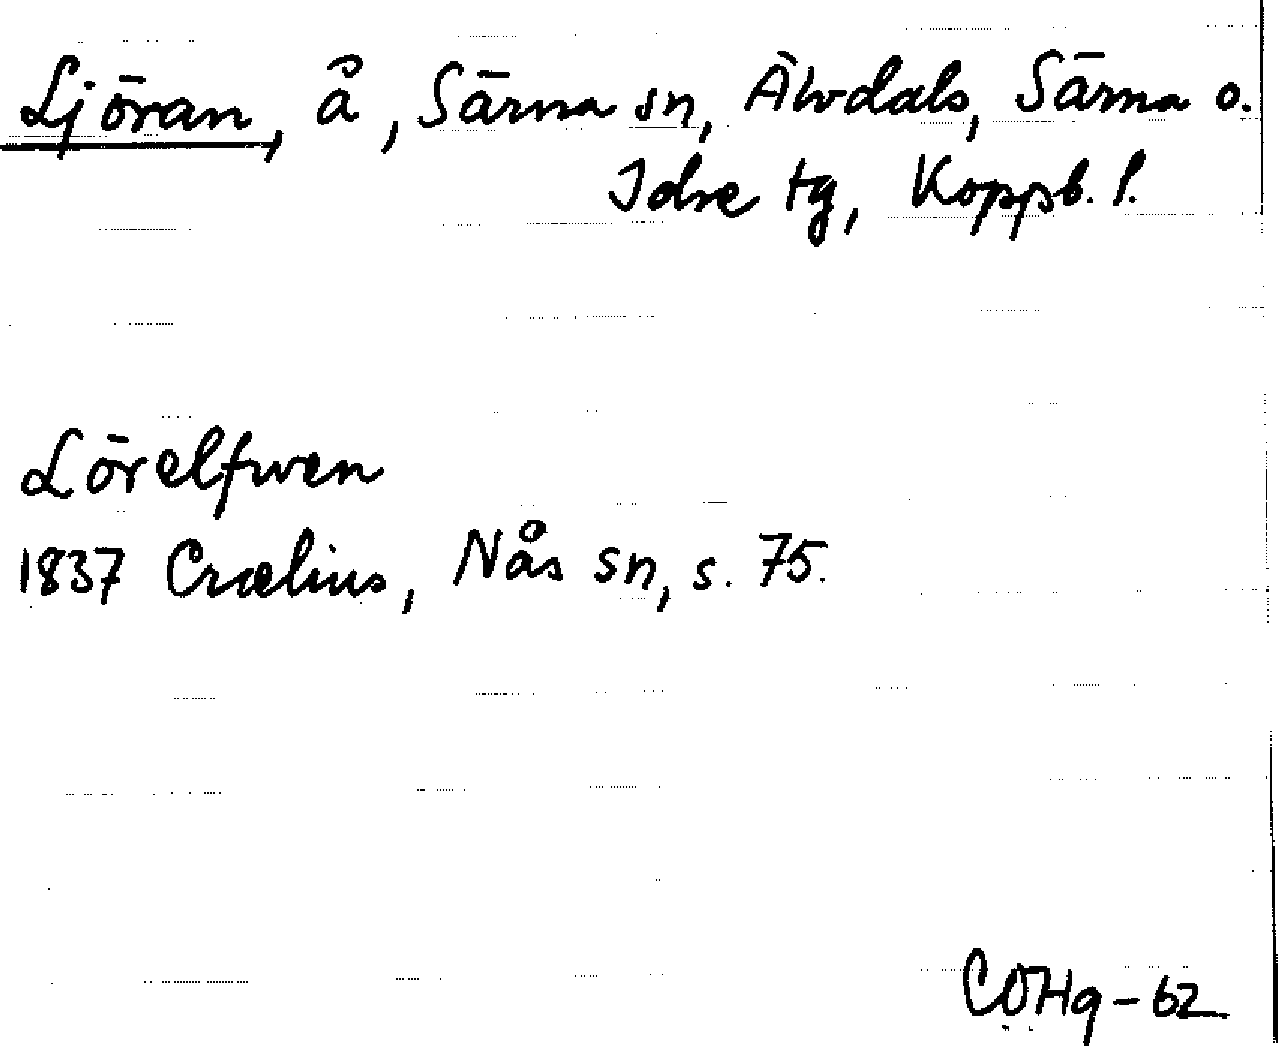 Ljöran, å, Särna sn, Älvdals, Särna o.
Idre tg, Koppb. l.
Lörelfwen
1837 Crælius, Nås sn, s. 75.
COHq-62